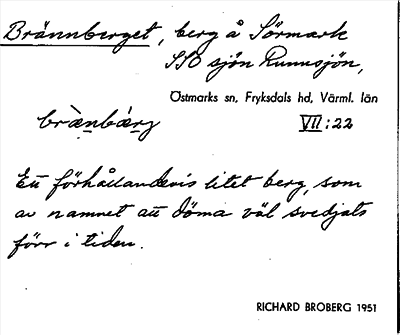 Brännberget, berg å Sörmark
SSO sjön Runnsjön,
Östmarks sn, Fryksdals hd, Värml. län
bränbärg VII:22
Ett förhållandevis litet berg, som
av namnet att döma väl svedjats
förr i tiden.
RICHARD BROBERG 1951